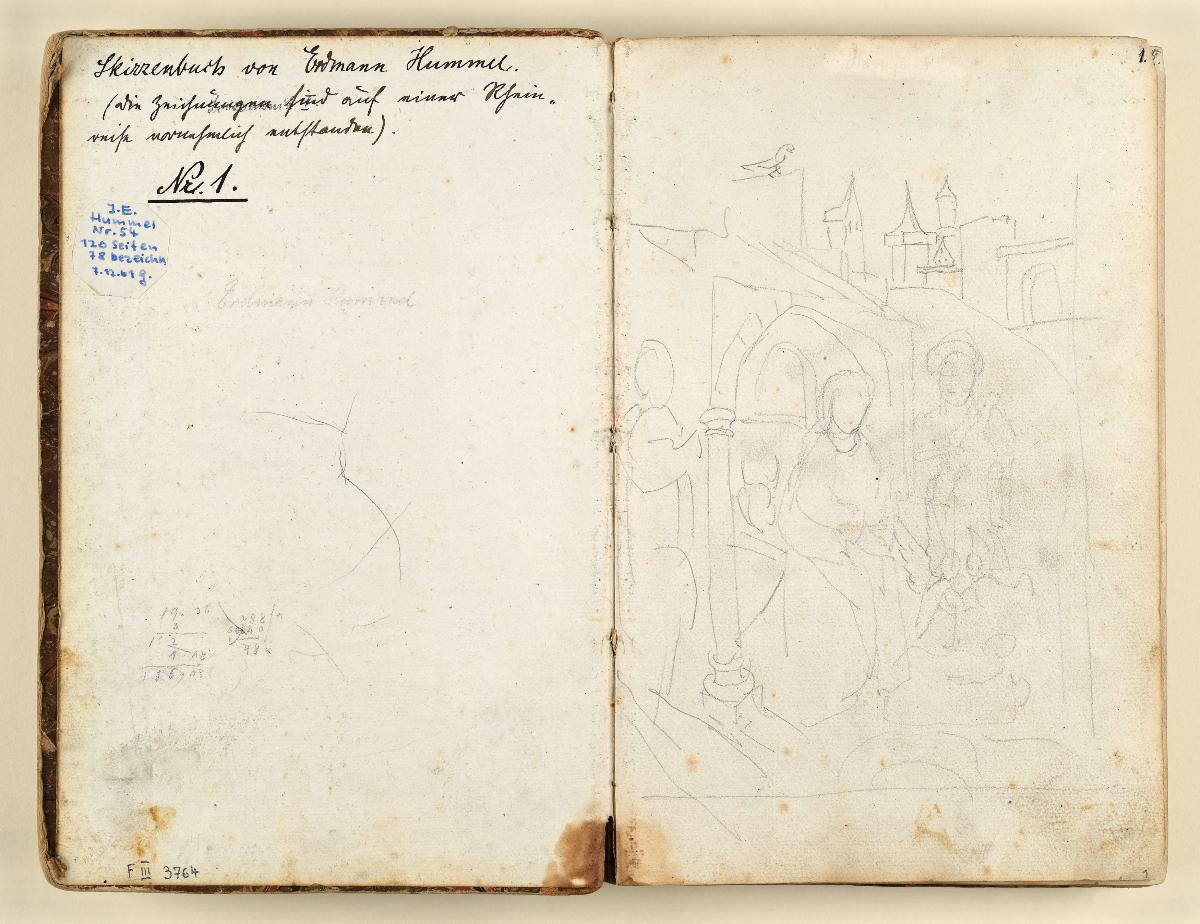 Skizzenbuch von Erdmann Hummel.
(die Zeichnungen sind auf einer Rhein-
reise vornehmlich entstanden).
Nr. 1.
J.E.
Hummel
Nr. 54
120 Seiten
78 bezeichn
7.12.61 g.
Erdmann Hummel
F III 3764
1.
1